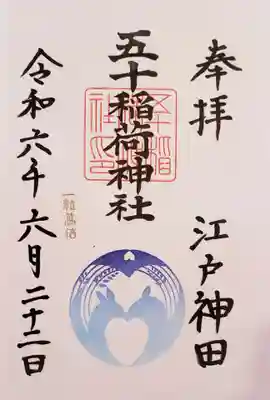 奉拝
江戸神田
五十稲荷神社
令和六年六月二十二日